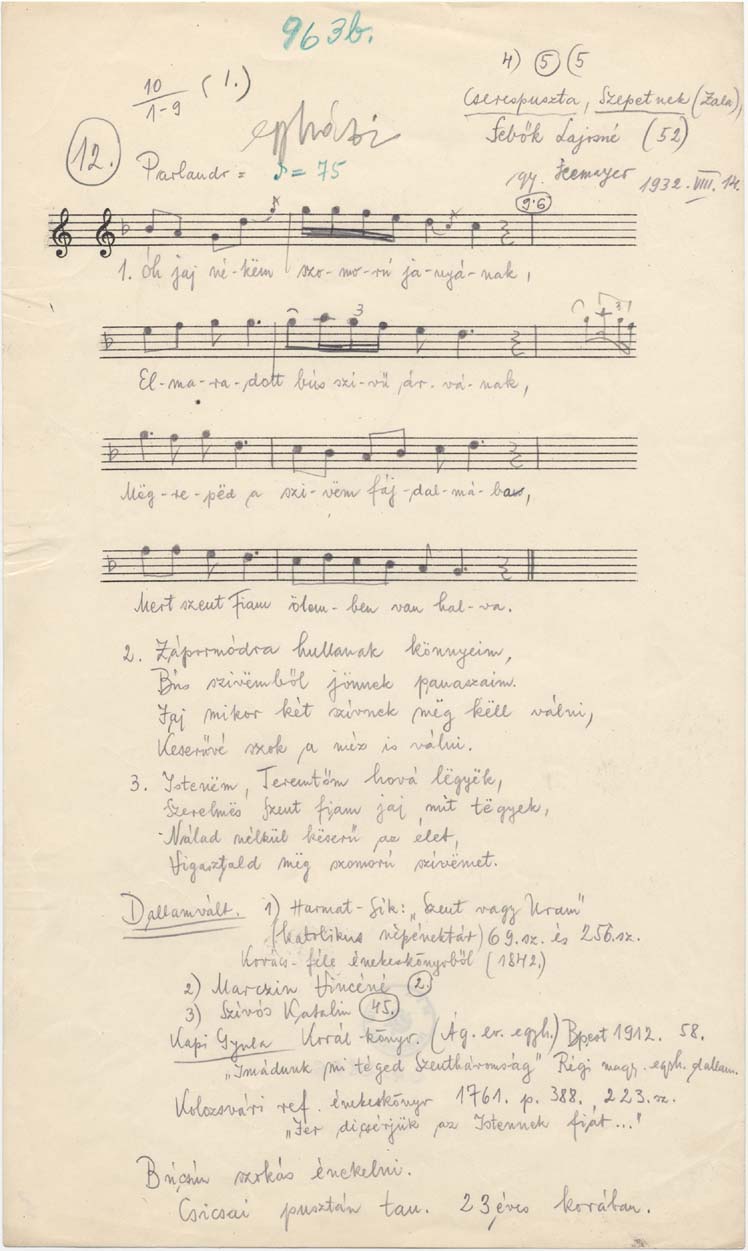 963b.
4) 5 (5
10/1-9 (1.)
Cserespuszta, Szepetnek (Zala),
egyházi
Sebők Lajosné (52)
12.
Parlando = ♪ = 75
gy. Seemayer 1932. VIII. 14.
9·6
1. Óh jaj né-këm szo-mo-rú ja-nyá-nak,
3
3
El-ma-ra-dott bús szi-vű ár-vá-nak,
Mëg-re-pëd a szi-vëm fáj-dal-má-ban,
Mert szent Fiam ölem-ben van hal-va.
2. Zápormódra hullanak könnyeim,
Bús szivëmből jönnek panaszaim.
Jaj mikor két szívnek mëg këll válni,
Keserűvé szok a méz is válni.
3. Istenëm, Teremtőm hová lëgyëk,
Szerelmës Szent fjam jaj mit tëgyek,
Nálad nélkül këserű az élet,
Vigasztald mëg szomorú szívëmet.
Dallamvált. 1) Harmat-Sik: „Szent vagy Uram"
(katolikus népénektár) 69.sz. és 256.sz.
Kovács-féle énekeskönyvből (1842.)
2) Marczin Vincéné 2.
3) Szívós Katalin 45.
Kapi Gyula Korál-könyv. (Ág. ev. egyh.) Bpest 1912. 58.
„Imádunk mi téged Szentháromság" Régi magy. egyh. dallam.
Kolozsvári ref. énekeskönyv 1761. p. 388. 223.sz.
„Jer dicsérjük az Istennek fiját..."
Búcsún szokás énekelni.
Csicsai pusztán tan. 23 éves korában.